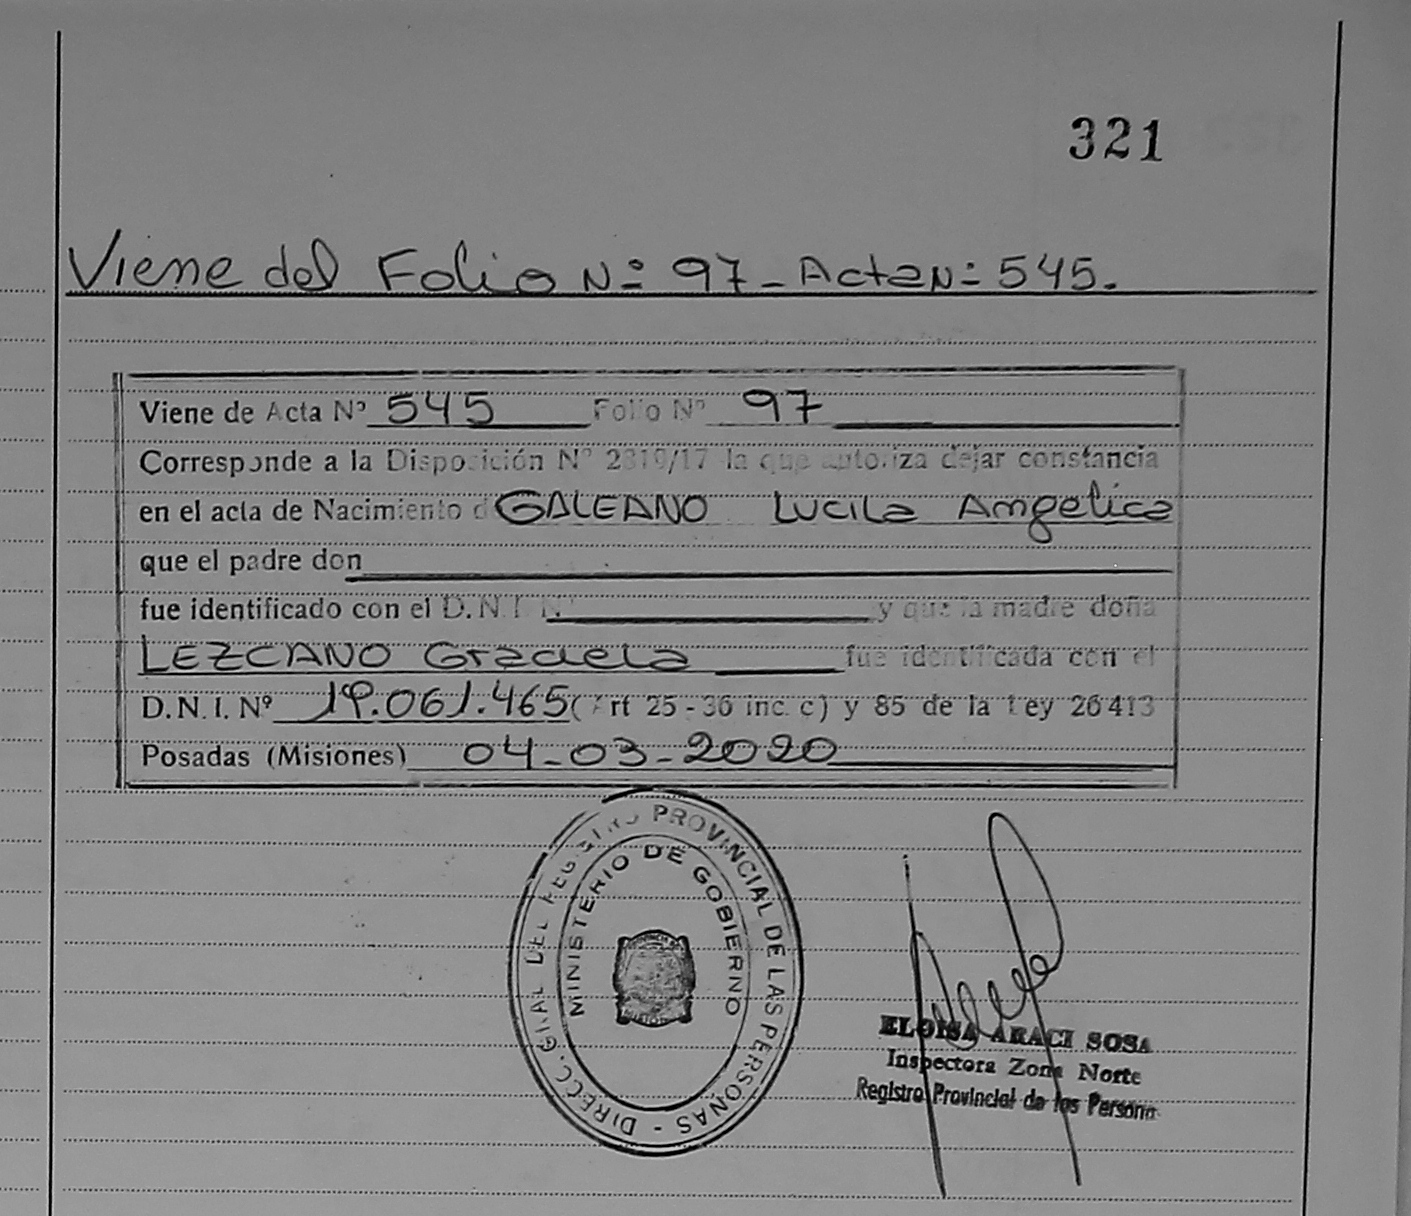 321
Viene del Folio N: 97 - Acta N: 545.
Viene de Acta Nº 545 Folio Nº 97
Corresponde a la Disposición Nº 2319/17 la que autoriza dejar constancia
en el acta de Nacimiento d GALEANO Lucila Angelica
que el padre don
fue identificado con el D.N.I. Nº y que la madre doña
LEZCANO Graciela fue identificada con el
D.N.I. Nº 19.061.465 (Art 25 - 36 inc. c) y 85 de la Ley 26413
Posadas (Misiones) 04-03-2020
DIRECC. GRAL DEL REGISTRO PROVINCIAL DE LAS PERSONAS -
MINISTERIO DE GOBIERNO
ELOISA ARACI SOSA
Inspectora Zona Norte
Registro Provincial de las Persona